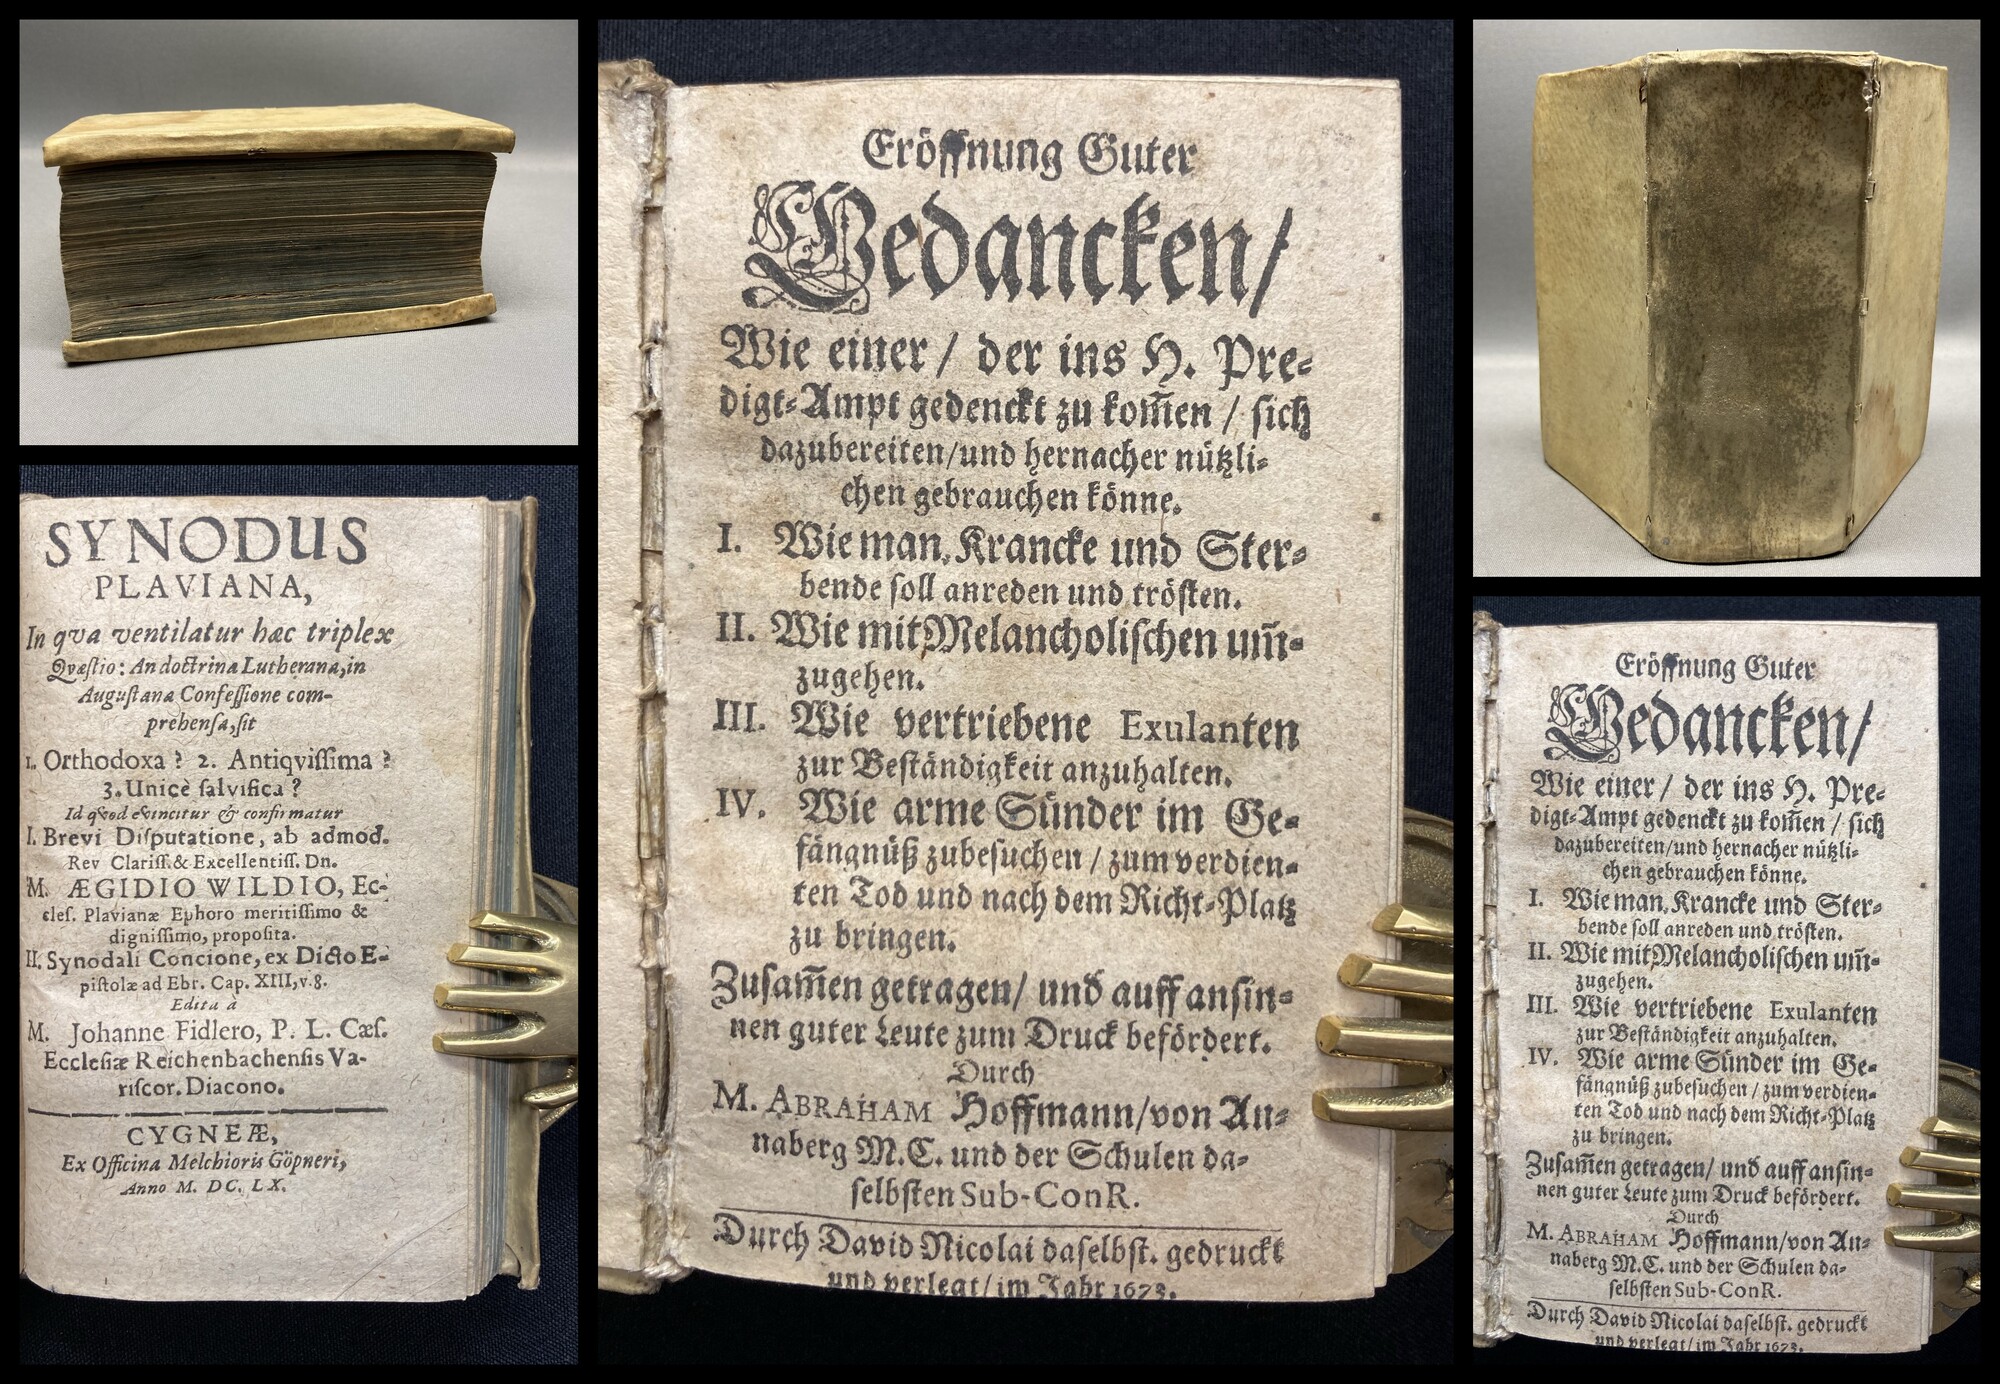 SYNODUS
PLAVIANA,
In qva ventilatur hæc triplex
Qvæſtio: An doctrina Lutherana, in
Auguſtana Confeſſione com-
prehenſa, ſit
1. Orthodoxa? 2. Antiqviſſima?
3. Unicè ſalvifica?
Id qvod evincitur & confirmatur
I. Brevi Diſputatione, ab admod.
Rev Clariſſ. & Excellentiſſ. Dn.
M. ÆGIDIO WILDIO, Ec-
cleſ. Plavianæ Ephoro meritiſſimo &
digniſſimo, propoſita.
II. Synodali Concione, ex Dicto E-
piſtolæ ad Ebr. Cap. XIII, v. 8.
Edita à
M. Johanne Fidlero, P. L. Cæſ.
Eccleſiæ Reichenbachenſis Va-
riſcor. Diacono.
CYGNEÆ,
Ex Officina Melchioris Göpneri,
Anno M. DC. LX.
Eröffnung Guter
Gedancken/
Wie einer / der ins H. Pre⸗
digt⸗Ampt gedenckt zu kom̃en / ſich
dazubereiten/und hernacher nützli⸗
chen gebrauchen könne.
I. Wie man, Krancke und Ster⸗
bende ſoll anreden und tröſten.
II. Wie mit Melancholiſchen um̃⸗
zugehen.
III. Wie vertriebene Exulanten
zur Beſtändigkeit anzuhalten.
IV. Wie arme Sünder im Ge⸗
fängnüß zubeſuchen / zum verdien⸗
ten Tod und nach dem Richt⸗Platz
zu bringen.
Zuſam̃en getragen/ und auff anſin⸗
nen guter Leute zum Druck befördert.
Durch
M. ABRAHAM Hoffmann/von An⸗
naberg M.C. und der Schulen da⸗
ſelbſten Sub-ConR.
Durch David Nicolai daſelbſt. gedruckt
und verlegt/ im Jahr 1673.
Eröffnung Guter
Gedancken/
Wie einer / der ins H. Pre⸗
digt⸗Ampt gedenckt zu kom̃en / ſich
dazubereiten/und hernacher nützli⸗
chen gebrauchen könne.
I. Wie man, Krancke und Ster⸗
bende ſoll anreden und tröſten.
II. Wie mit Melancholiſchen um̃⸗
zugehen.
III. Wie vertriebene Exulanten
zur Beſtändigkeit anzuhalten.
IV. Wie arme Sünder im Ge⸗
fängnüß zubeſuchen / zum verdien⸗
ten Tod und nach dem Richt⸗Platz
zu bringen.
Zuſam̃en getragen/ und auff anſin⸗
nen guter Leute zum Druck befördert.
Durch
M. ABRAHAM Hoffmann/von An⸗
naberg M.C. und der Schulen da⸗
ſelbſten Sub-ConR.
Durch David Nicolai daſelbſt. gedruckt
und verlegt/ im Jahr 1673.